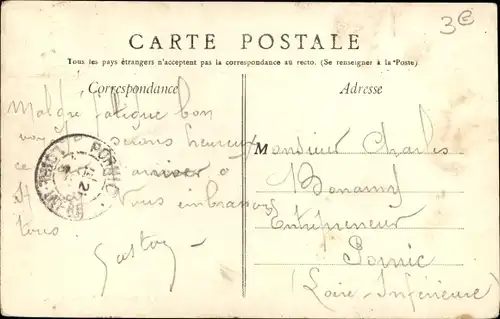 3€
CARTE POSTALE
Tous les pays étrangers n'acceptent pas la correspondance au recto. (Se renseigner à la Poste)
Correspondance
Adresse
Malgré fatigue bon
serons heureux
ce arriver à
Vous embrassons
tous.
Gaston
PORNIC
Monsieur Charles
Bonamy
Entrepreneur
Pornic
(Loire-Inférieure)